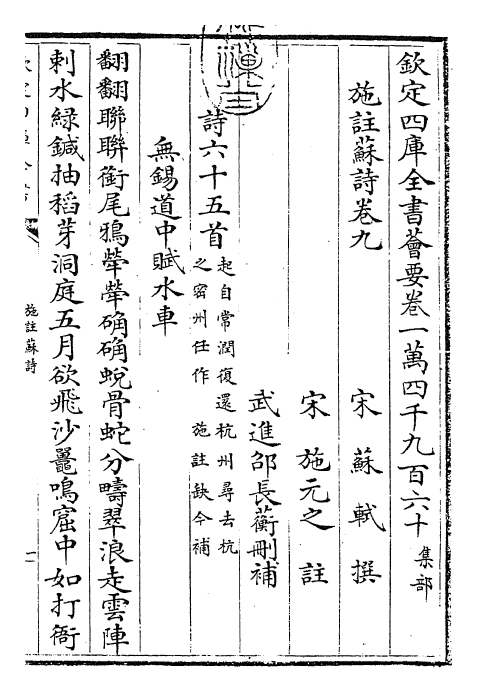 欽定四庫全書薈要卷一萬四千九百六十 集部
施註蘇詩卷九
宋 蘇軾 撰
宋 施元之 註
武進邵長蘅刪補
詩六十五首 起自常潤復還杭州尋去杭
之密州任作 施註缺今補
無錫道中賦水車
翻翻聯聯銜尾鴉犖犖确确蛻骨蛇分疇翠浪走雲陣
刺水綠鍼抽稻芽洞庭五月欲飛沙鼉鳴窟中如打衙
施註蘇詩
一